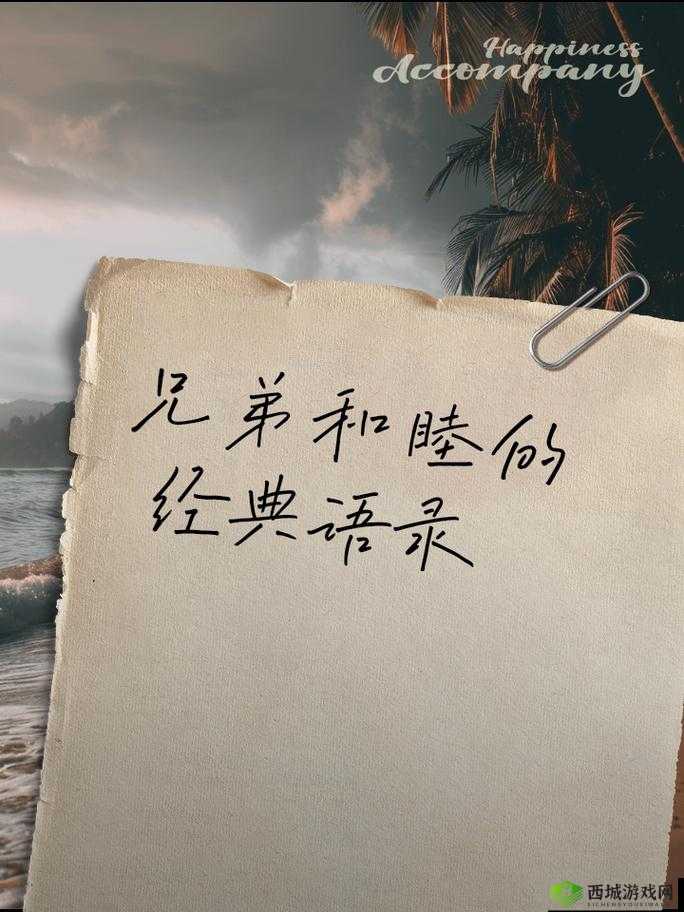 Happiness
Accompany
兄弟和睦的
经典语录
西城游戏网